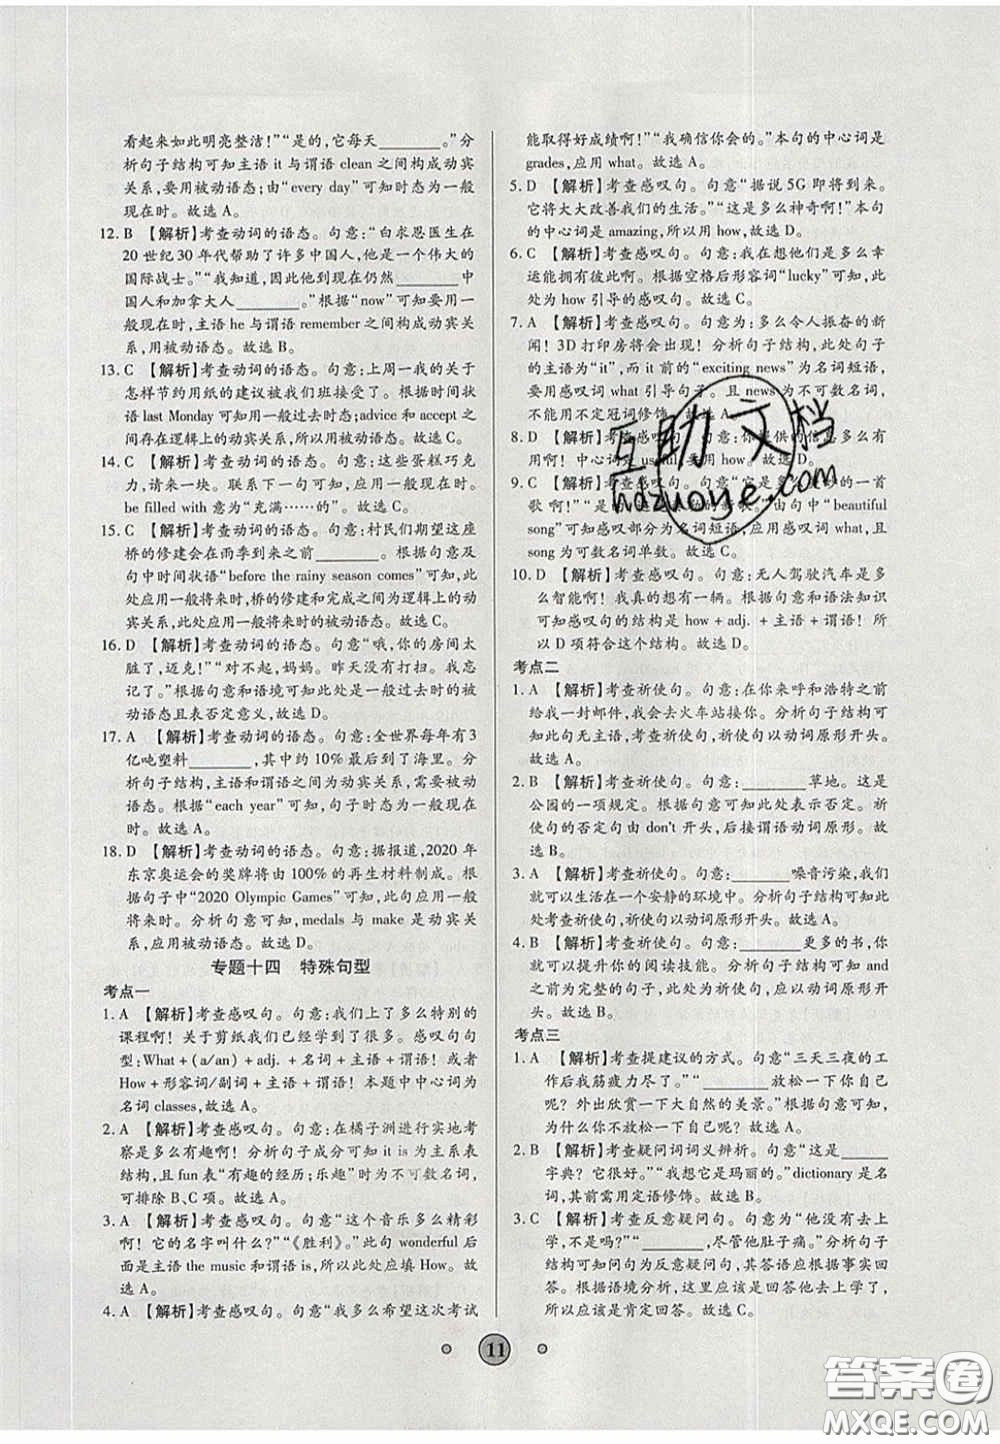 看起来如此明亮整洁！”“是的，它每天________。”分
析句子结构可知主语 it 与谓语 clean 之间构成动宾
关系，要用被动语态；由“every day”可知时态为一般
现在时。故选 A。
12. B 【解析】考查动词的语态。句意：“白求恩医生在
20 世纪 30 年代帮助了许多中国人，他是一个伟大的
国际战士。”“我知道，因此他到现在仍然________中
国人和加拿大人________。”根据“now”可知要用一
般现在时，主语 he 与谓语 remember 之间构成动宾关
系，用被动语态。故选 B。
13. C 【解析】考查动词的语态。句意：上周一我的关于
怎样节约用纸的建议被我们班接受了。根据时间状
语 last Monday 可知用一般过去时态；advice 和 accept 之
间存在逻辑上的动宾关系，所以用被动语态。故选 C。
14. C 【解析】考查动词的语态。句意：这些蛋糕巧克
力，请来一块。联系下一句可知，蛋糕充满巧克力。
be filled with 意为“充满……的”。故选 C。
15. C 【解析】考查动词的语态。句意：村民们期望这座
桥的修建会在雨季到来之前________。根据句意及
句中时间状语“before the rainy season comes”可知，
此处应用一般将来时，桥的修建和完成之间为逻辑上的动
宾关系，此处应用一般将来时的被动语态。故选 C。
16. D 【解析】考查动词的语态。句意：“哦，你的房间太
脏了，迈克！”“对不起，妈妈。昨天没有打扫。我忘
记了。”根据句意和语境可知此处是一般过去时的被
动语态且表否定意义，故选 D。
17. A 【解析】考查动词的语态。句意：全世界每年有 3
亿吨塑料________，其中约 10%最后到了海里。分
析句子结构，主语和谓语之间为动宾关系，需要被动
语态。根据“each year”可知，句子时态为一般现在
时。故选 A。
18. D 【解析】考查动词的语态。句意：据报道，2020 年
东京奥运会的奖牌将由 100%的再生材料制成。根
据句子中“2020 Olympic Games”可知，此句应用一般
将来时。分析句意可知，medals 与 make 是动宾关
系，应用被动语态。故选 D。
专题十四 特殊句型
考点一
1. A 【解析】考查感叹句。句意：我们上了多么特别的
课程啊！关于剪纸我们已经学到了很多。感叹句句
型：What＋(a/an)＋adj.＋名词＋主语＋谓语！或者
How＋形容词/副词＋主语＋谓语！本题中中心词为
名词 classes，故选 A。
2. A 【解析】考查感叹句。句意：在橘子洲进行实地考
察是多么有趣啊！分析句子成分可知 it 为主系表
结构，且 fun 表“有趣的经历；乐趣”时为不可数名词，
可排除 B、C 项。故选 A。
3. A 【解析】考查感叹句。句意“这个音乐多么精彩
啊！它的名字叫什么？”“《胜利》。”此句 wonderful 后
面是主语 the music 和谓语 is，所以此处应填 How。故
选 A。
4. A 【解析】考查感叹句。句意“我多么希望这次考试
能取得好成绩啊！”“我确信你会的。”本句的中心词是
grades，应用 what。故选 A。
5. D 【解析】考查感叹句。句意“据说 5G 即将到来。
它将大大改善我们的生活。”“这是多么神奇啊！”本句
的中心词是 amazing，所以用 how，故选 D。
6. C 【解析】考查感叹句。句意：我在想他们是多么幸
运能拥有彼此啊。根据空格后形容词“lucky”可知，此
处为 how 引导的感叹句。故选 C。
7. A 【解析】考查感叹句。句意为：多么令人振奋的新
闻！3D 打印房将会出现！分析句子结构，此处句子
的主语为“it”，而 it 前的“exciting news”为名词短语，
要用感叹词 what 引导句子。且 news 为不可数名词，
不能用不定冠词修饰。故选 A。
8. D 【解析】考查感叹句。句意：你提供的信息多么有
用啊！中心词是 useful，要用 how。故选 D。
9. C 【解析】考查感叹句。句意“它是多么美的一首
歌啊！”“是的。它是 的新歌。”由句中“beautiful
song”可知感叹部分为名词短语，应用感叹词 what，且
song 为可数名词单数。故选 C。
10. D 【解析】考查感叹句。句意：无人驾驶汽车是多
么智能啊！我真的想有一辆。根据句意和语法知识
可知感叹句的结构是 how＋adj.＋主语＋谓语！所
以 D 项符合这个结构。故选 D。
考点二
1. A 【解析】考查祈使句。句意：在你来呼和浩特之前
给我一封邮件，我会去火车站接你。分析句子结构可
知此句无主语，故为祈使句，祈使句以动词原形开头。
故选 A。
2. B 【解析】考查祈使句。句意：________草地。这是
公园的一项规定。根据句意可知此处表示否定。祈
使句的否定句由 don't 开头，后接谓语动词原形。故
选 B。
3. A 【解析】考查祈使句。句意：________噪音污染，我们
就可以生活在一个安静的环境中。分析句子结构可知此
处考查祈使句，祈使句以动词原形开头。故选 A。
4. B 【解析】考查祈使句。句意：________更多的书，你
就可以提升你的阅读技能。分析句子结构可知 and
之前为完整的句子，此处应为祈使句，以动词原形开
头。故选 B。
考点三
1. A 【解析】考查提建议的方式。句意“三天三夜的工
作后我筋疲力尽了。”“________放松一下你自己
呢？外出欣赏一下大自然的美景。”根据句意可知，
为什么你不放松一下自己呢？故选 A。
2. B 【解析】考查疑问词词义辨析。句意“这是________
字典？它很好。”“我想它是玛丽的。”dictionary 是名
词，其前需用定语修饰。故选 B。
3. C 【解析】考查反意疑问句。句意为“他没有去上
学，不是吗？”“________，尽管他肚子痛。”分析句子
结构可知为反意疑问句，其答语应根据事实来
回答。根据语境分析，这里应该是回答他去上学了，
所以应该是肯定回答。故选 C。
11
互助文档
hdzuoye.com
答案圈
MXQE.COM